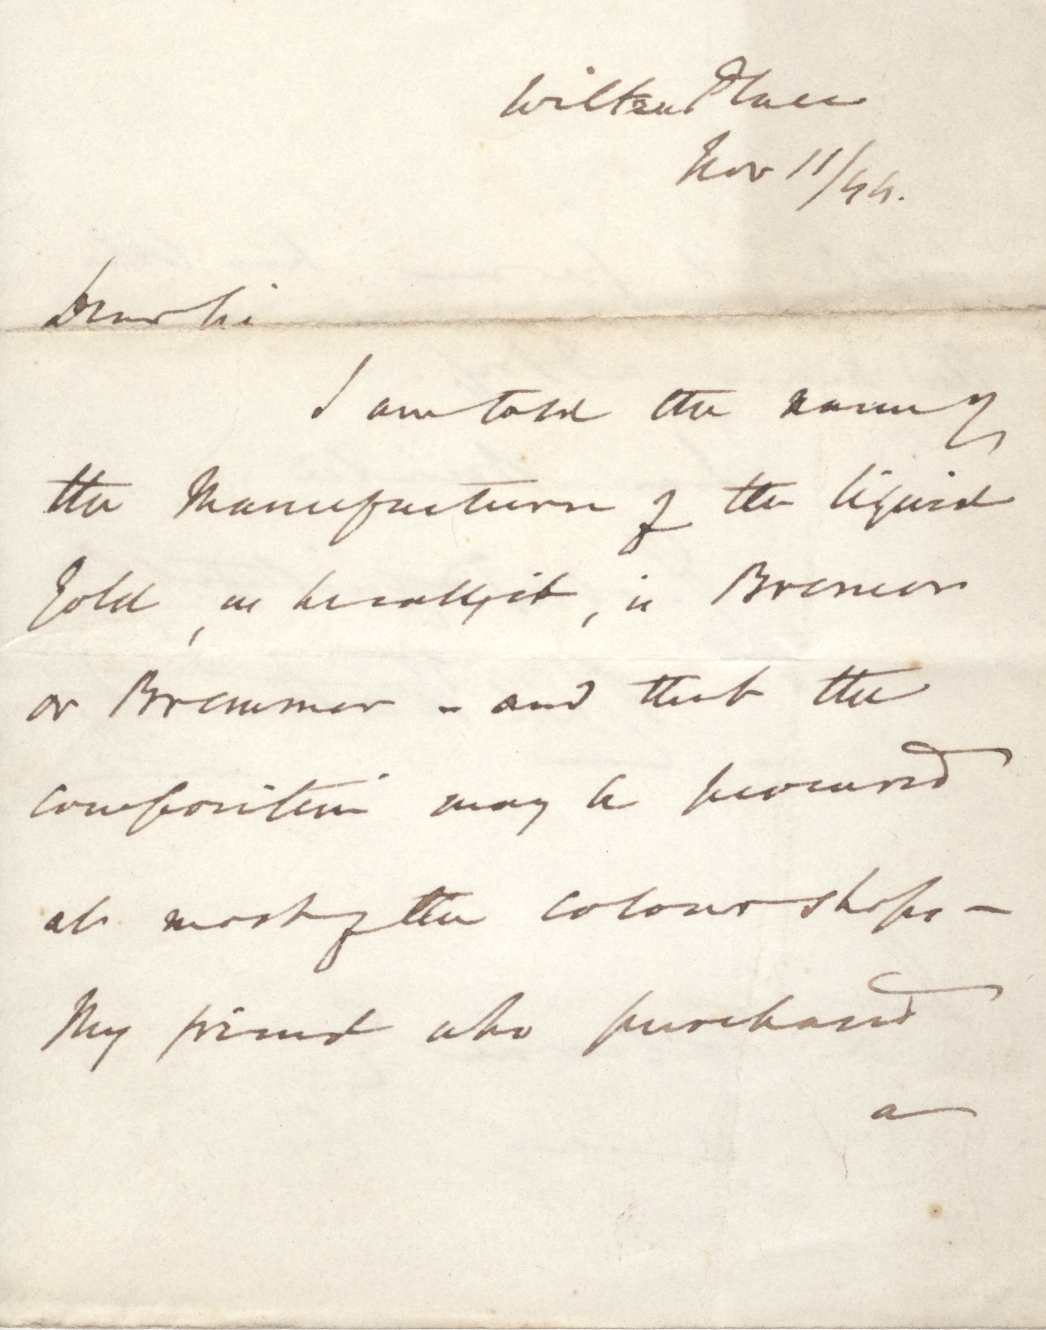 Wilton Place
Nov 11/44.
Dear Sir
I am told the name of
the Manufacturer of the liquid
Gold, as he calls it, is Bremer
or Bremmer - and that the
composition may be procured
at most of the colour shops -
My friend who purchased
a